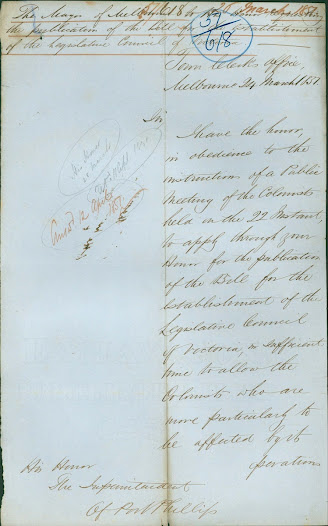 The Mayor of Melbourne
the publication of the Bill for the establishment
of the Legislative Council of
51/618
March 1851
Town Clerks Office,
Melbourne 24 March 1851
Sir
I have the honor,
in obedience to the
instruction of a Public
Meeting of the Colonists
held on the 22 Instant,
to apply through your
Honor for the publication
of the Bill for the
establishment of the
Legislative Council
of Victoria, in sufficient
time to allow the
Colonists who are
more particularly to
be affected by its
operation
His Honor
The Superintendent
Of Port Phillip